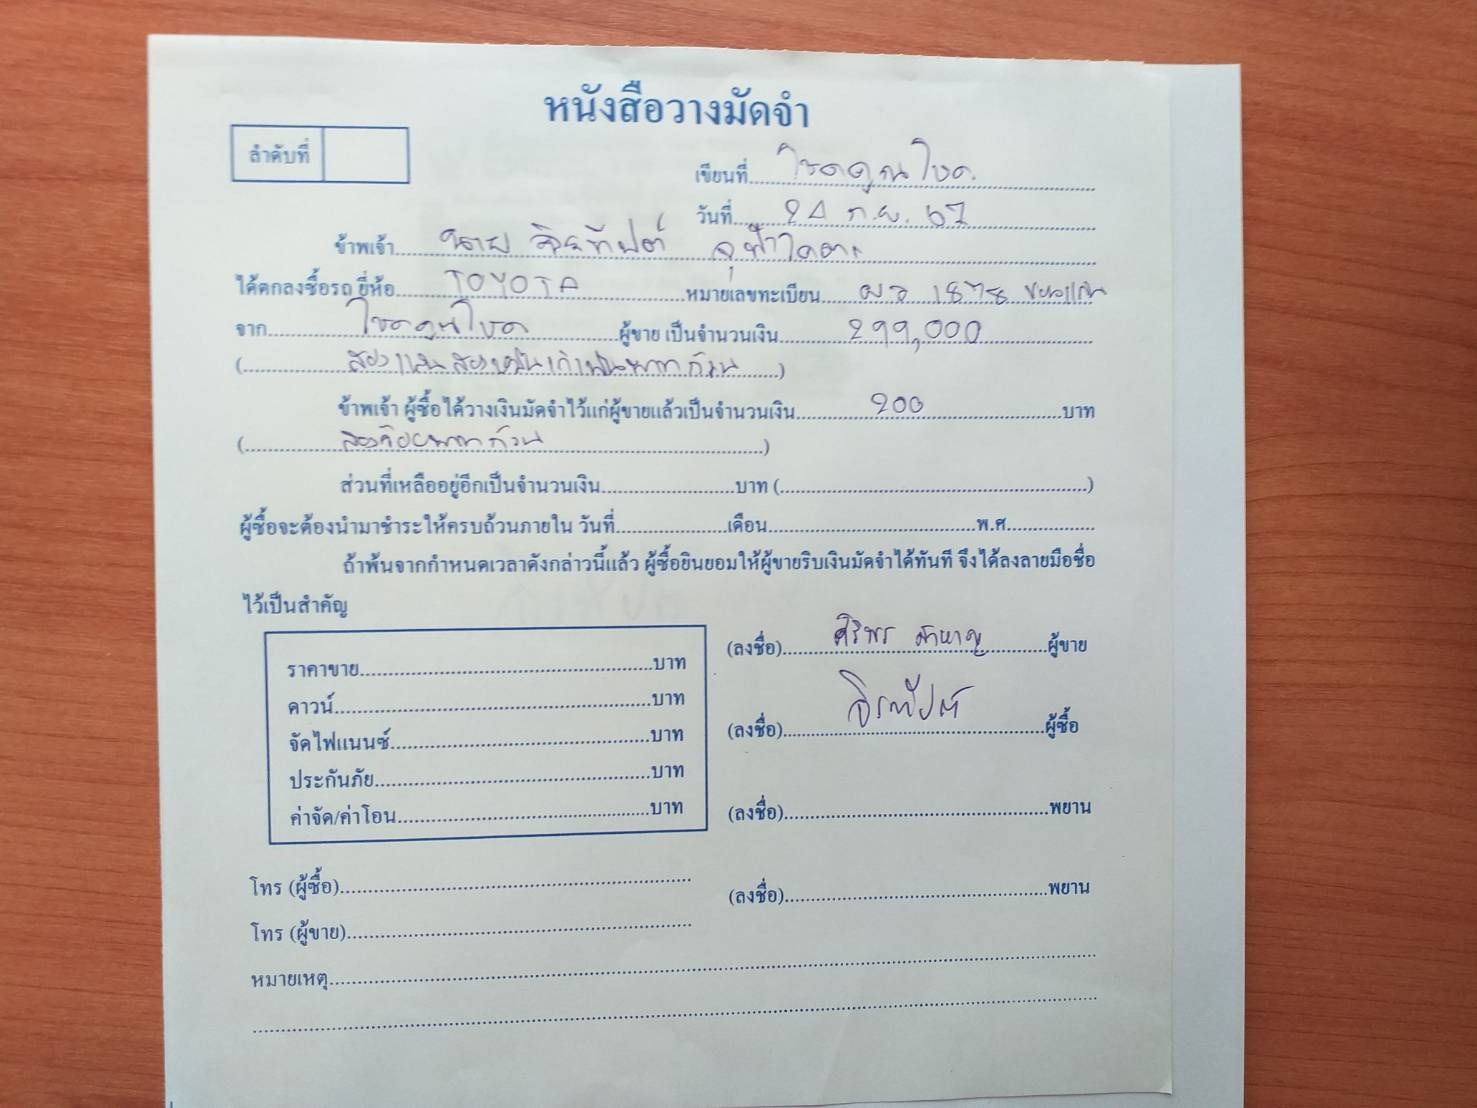 หนังสือวางมัดจำ
ลำดับที่
เขียนที่ โชคคูณโชค
วันที่ 24 ก.ย. 67
ข้าพเจ้า นาย
ได้ตกลงซื้อรถ ยี่ห้อ TOYOTA หมายเลขทะเบียน 1878 ขอนแก่น
จาก โชคคูนโชค ผู้ขาย เป็นจำนวนเงิน 299,000
( สองแสน เก้าพันบาทถ้วน )
ข้าพเจ้า ผู้ซื้อได้วางเงินมัดจำไว้แก่ผู้ขายแล้วเป็นจำนวนเงิน 200 บาท
( สองร้อยบาทถ้วน )
ส่วนที่เหลืออยู่อีกเป็นจำนวนเงิน บาท ( )
ผู้ซื้อจะต้องนำมาชำระให้ครบถ้วนภายใน วันที่ เดือน พ.ศ.
ถ้าพ้นจากกำหนดเวลาดังกล่าวนี้แล้ว ผู้ซื้อยินยอมให้ผู้ขายริบเงินมัดจำได้ทันที จึงได้ลงลายมือชื่อ
ไว้เป็นสำคัญ
(ลงชื่อ) ศิริพร ผู้ขาย
ราคาขาย บาท
ดาวน์ บาท
(ลงชื่อ) ผู้ซื้อ
จัดไฟแนนซ์ บาท
ประกันภัย บาท
ค่าจัด/ค่าโอน บาท
(ลงชื่อ) พยาน
โทร (ผู้ซื้อ)
(ลงชื่อ) พยาน
โทร (ผู้ขาย)
หมายเหตุ